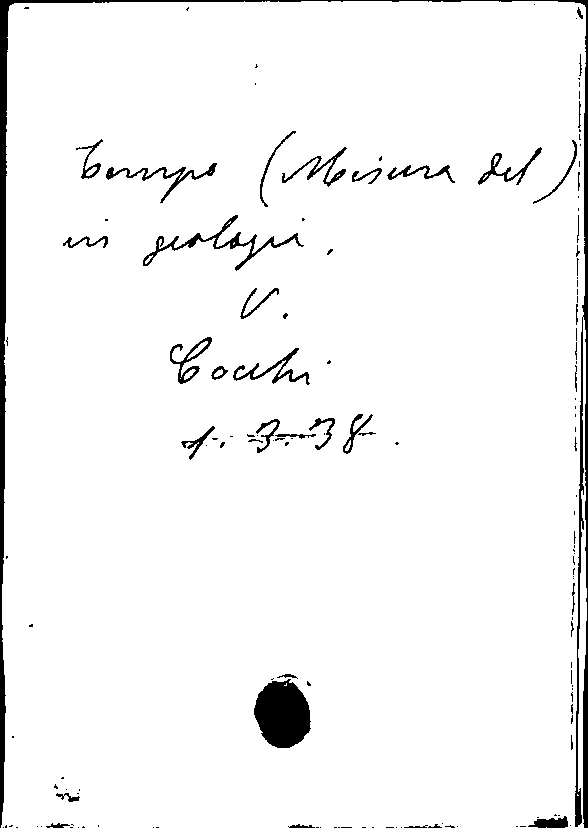 Tempo (Misura del)
in geologia.
V.
Cocchi
1. 3. 38.